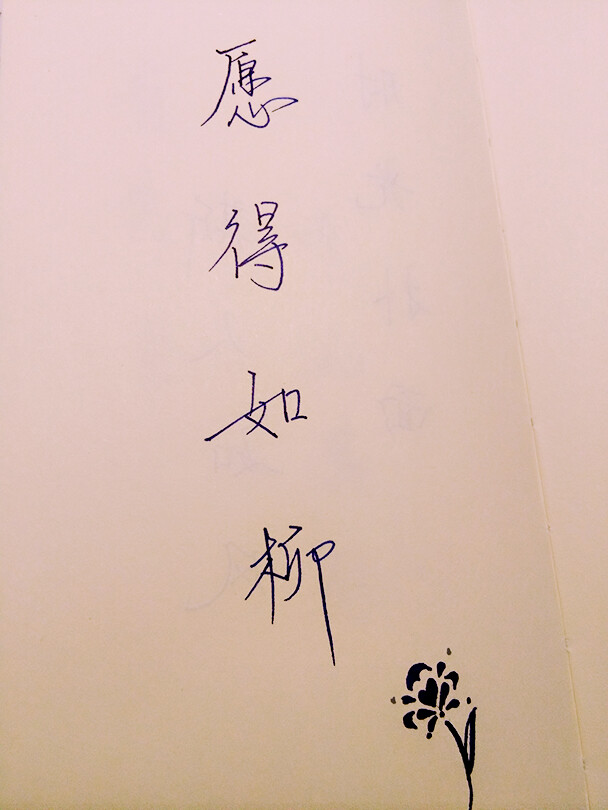 愿得如柳